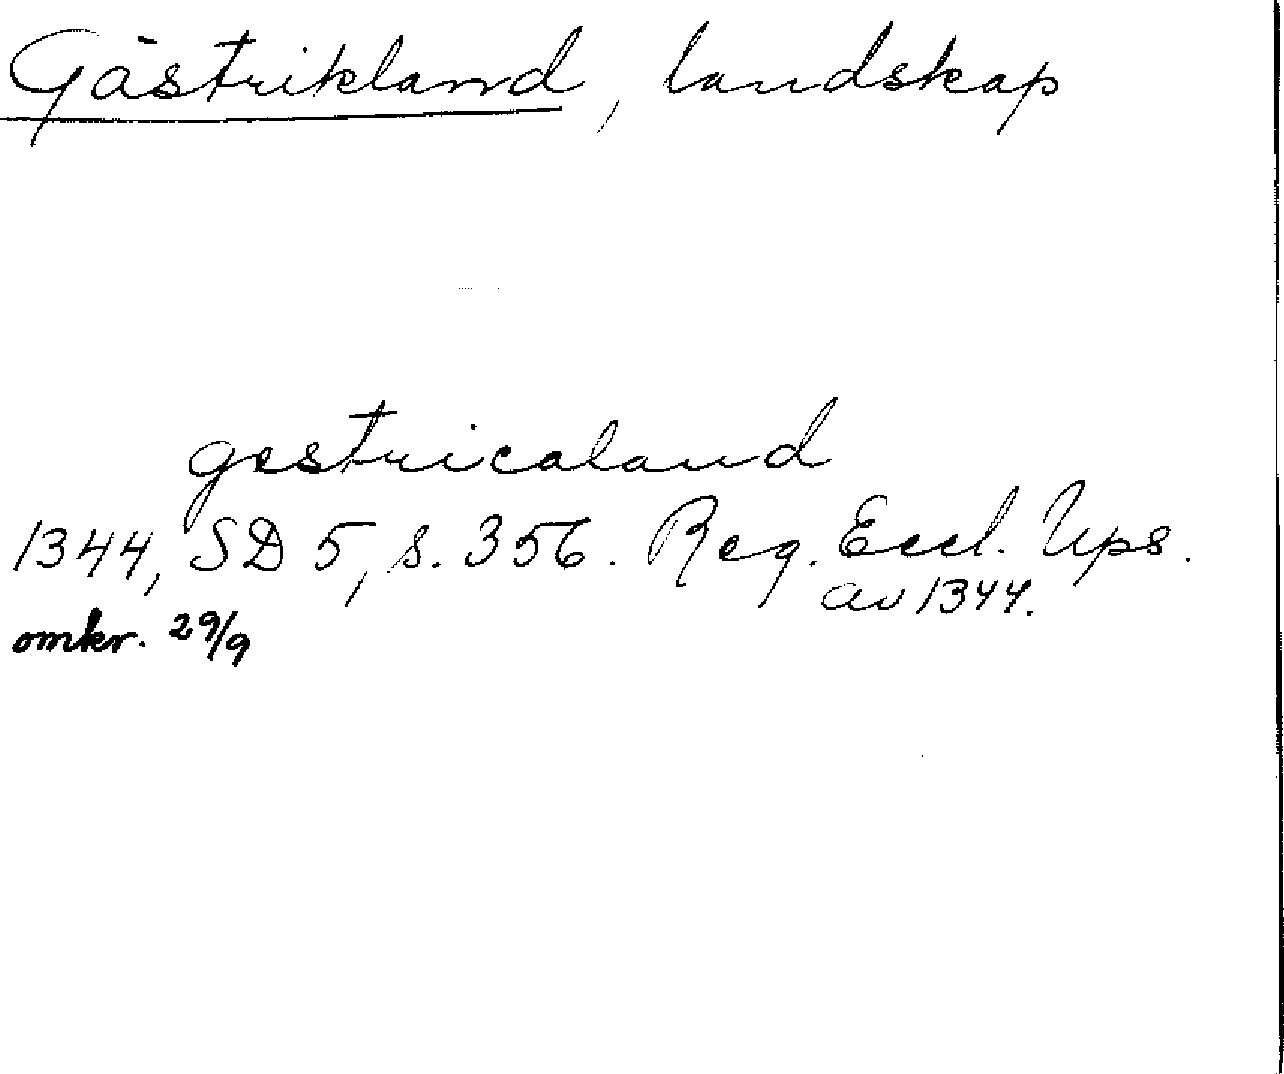 Gästrikland, landskap
gestricaland
1344, SD 5, s. 356. Reg. Eccl. Ups.
av 1344.
omkr. 29/9